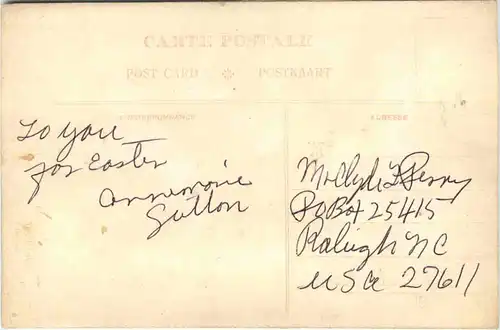 CARTE POSTALE
POST CARD * POSTKAART
CORRESPONDANCE
ADRESSE
To you
for Easter
Annemarie
Sutton
Mr Clyde L Perry
PO Box 25415
Raleigh NC
USA 27611